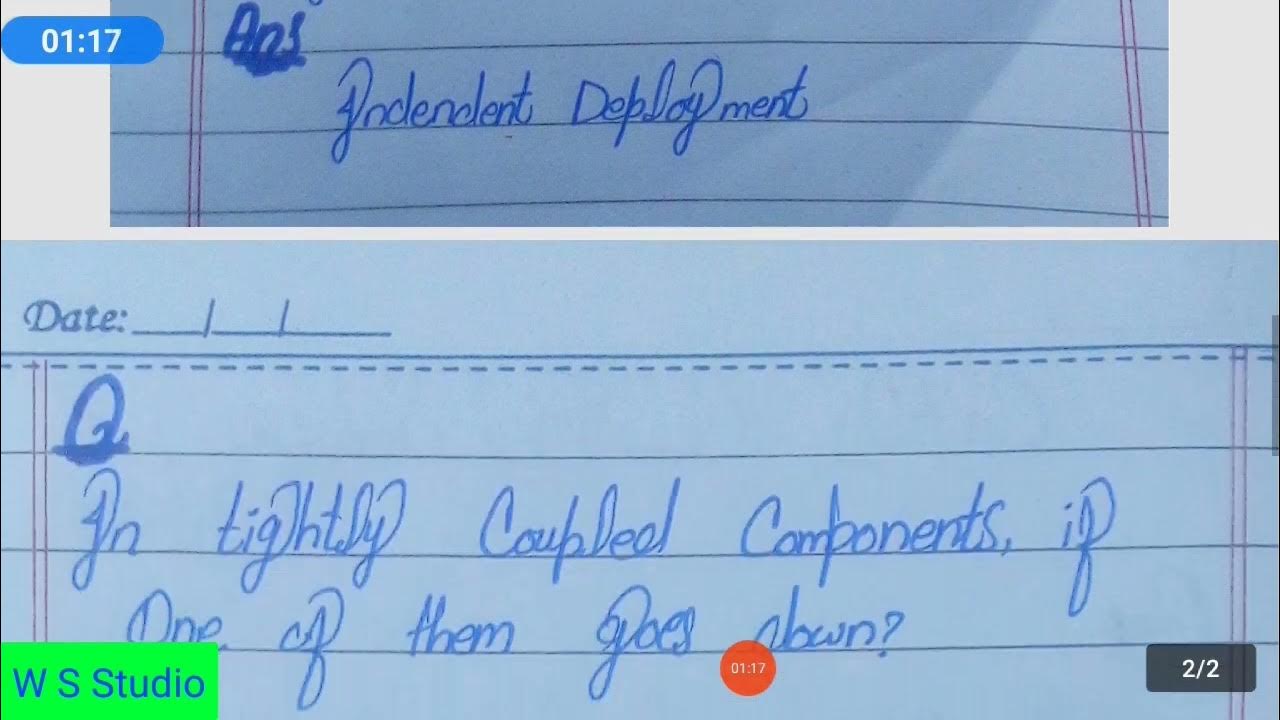 01:17
Ans
Indendent Deployment
Date: __/__/____
Q
In tightly Coupled Components, if
One of them goes down?
W S Studio
01:17
2/2